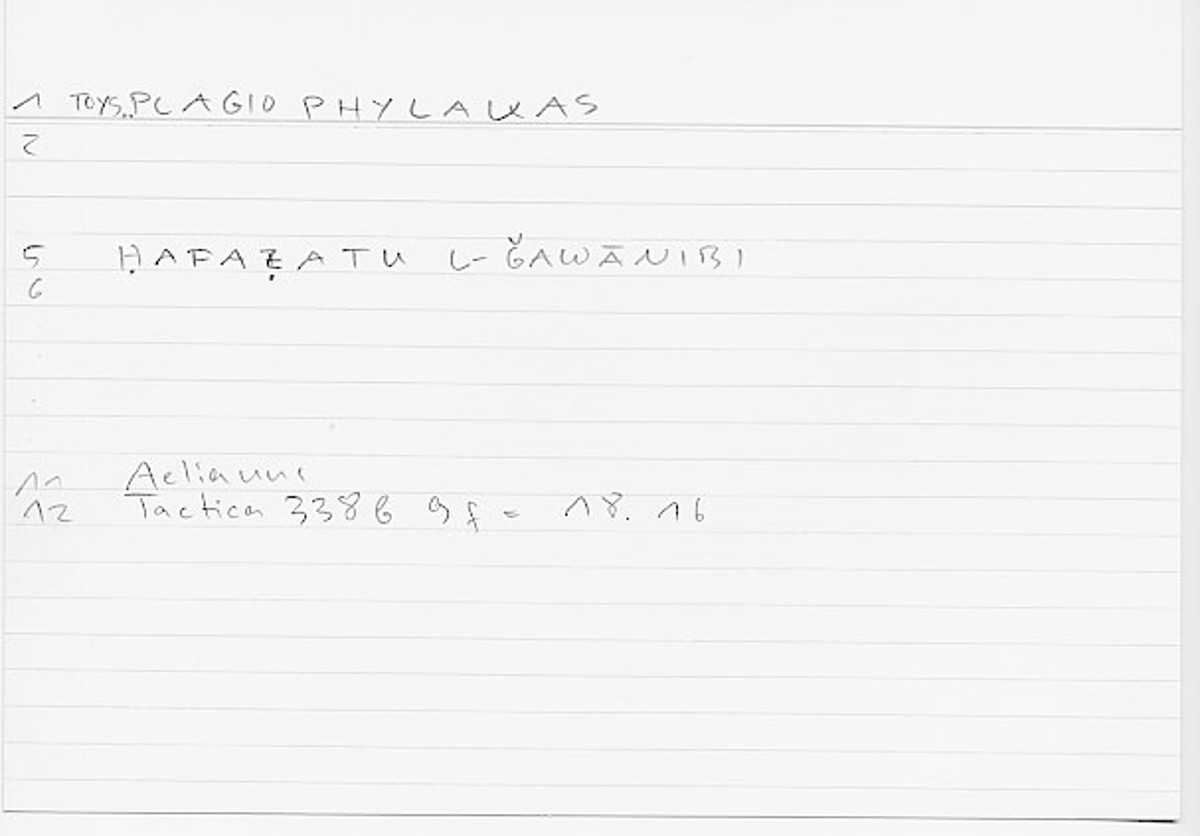 1 TOYS..PLAGIO PHYLAKAS
2
5 ḤAFAẒATU L-ǦAWĀNIBI
6
11 Aelianus
12 Tactica 338 6 9 f = 18. 16